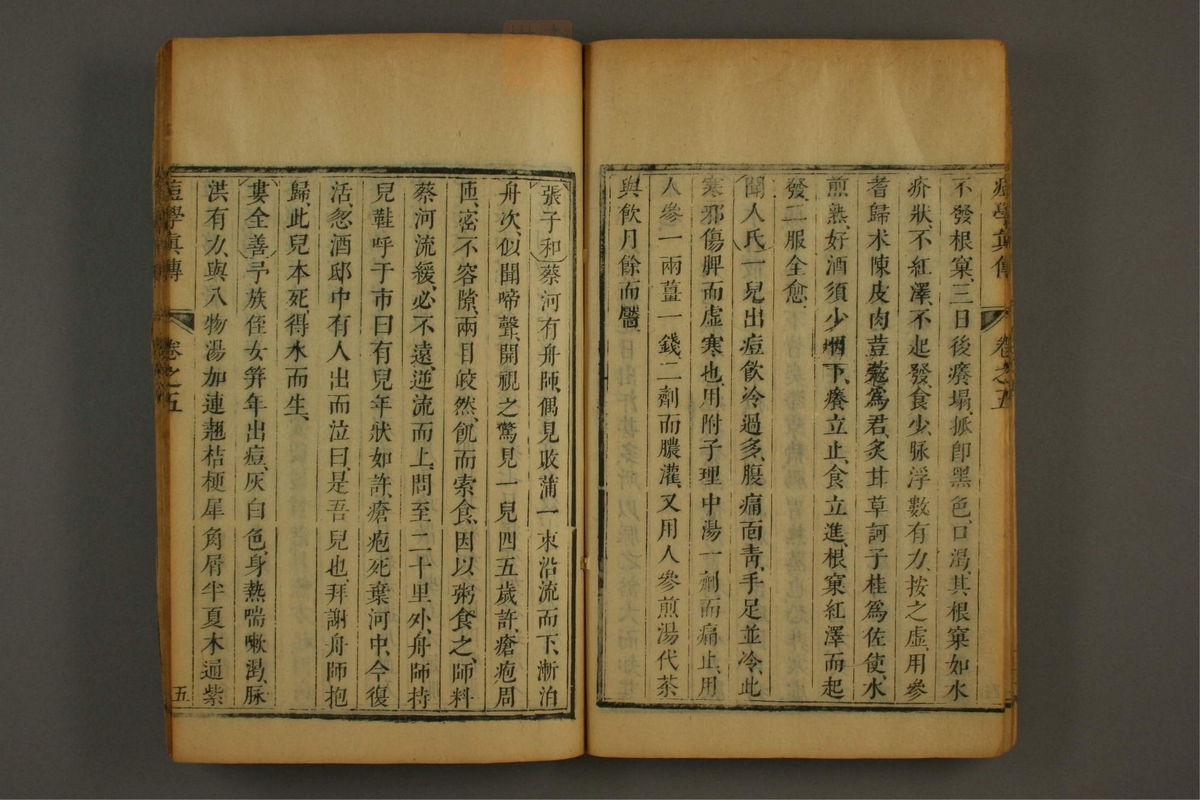 痘學真傳 卷之五
不發根窠、三日後癢塌、摋卽黑色、口渴、其根窠如水
疥狀、不紅澤、不起發、食少、脉浮數有力、按之虛、用參
耆歸术陳皮肉荳蔻爲君、炙甘草訶子桂爲佐使、水
煎熟、好酒須少烟下、癢立止、食立進、根窠紅澤而起
發、二服全愈、
聞人氏一兒出痘飲冷過多、腹痛面靑、手足並冷、此
寒邪傷脾而虛寒也、用附子理中湯一劑而痛止、用
人參一兩薑一錢二劑而膿灌、又用人參煎湯代茶
與飲月餘而靨、
張子和蔡河有舟師、偶見敗蒲一束沿流而下、漸泊
舟次、似聞啼聲、開視之驚見一兒四五歲許瘡疱周
匝、密不容隙、兩目皎然、飢而索食、因以粥食之、師料
蔡河流緩、必不遠、逆流而上、問至二十里外、舟師持
兒鞋呼于市曰有兒年狀如許、瘡疱死棄河中、今復
活、忽酒邸中有人出而泣曰、是吾兒也、拜謝舟師抱
歸、此兒本死、得水而生、
婁全善予族侄女笄年出痘、灰白色、身熱喘嗽渴、脉
洪有力、與八物湯加連翹桔梗犀角屑半夏木通紫
痘學真傳 卷之五 五